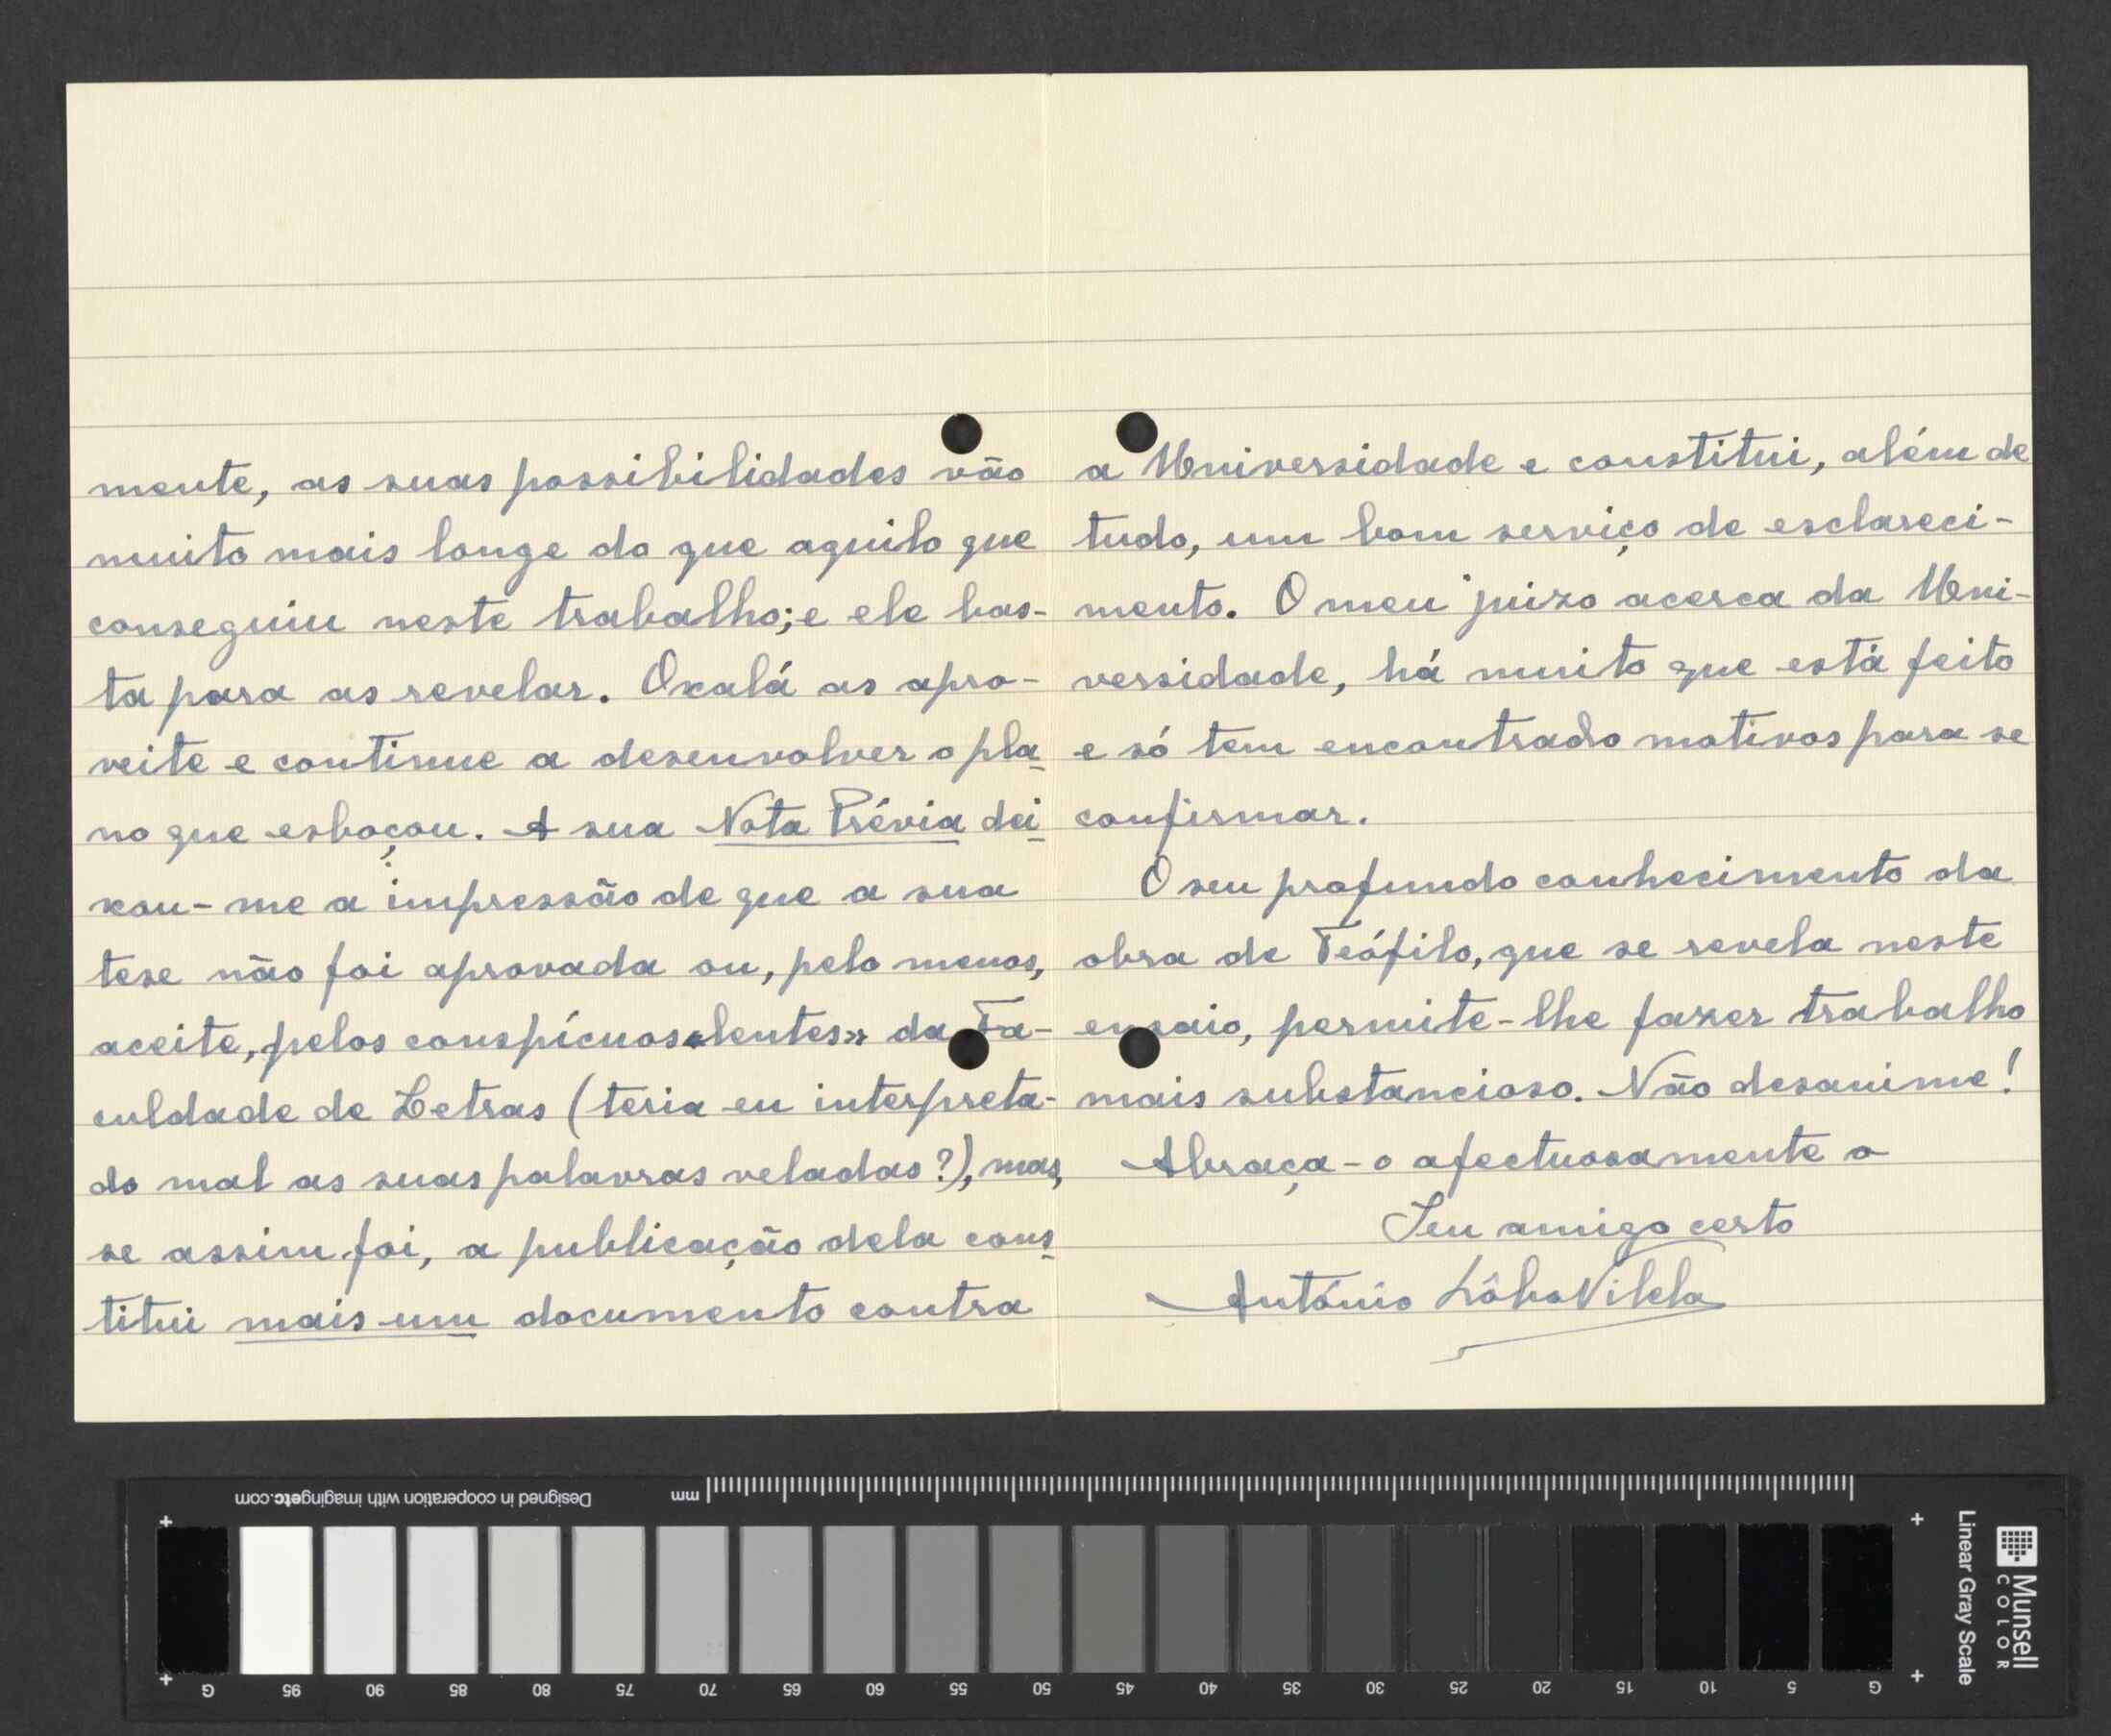 mente, as suas possibilidades vão
muito mais longe do que aquilo que
conseguiu neste trabalho; e ele bas-
ta para as revelar. Oxalá as apro-
veite e continue a desenvolver o pla
no que esboçou. A sua Nota Prévia dei
xou-me a impressão de que a sua
tese não foi aprovada ou, pelo menos,
aceite, pelos conspícuos «lentes» da Fa-
culdade de Letras (teria eu interpreta-
do mal as suas palavras veladas?), mas,
se assim foi, a publicação dela cons
titui mais um documento contra
a Universidade e constitui, além de
tudo, um bom serviço de esclareci-
mento. O meu juizo acerca da Uni-
versidade, há muito que está feito
e só tem encontrado motivos para se
confirmar.
O seu profundo conhecimento da
obra de Teófilo, que se revela neste
ensaio, permite-lhe fazer trabalho
mais substancioso. Não desanime!
Abraça-o afectuosamente o
Seu amigo certo
António Lôbo Vilela
Designed in cooperation with imagingetc.com
mm
G 95 90 85 80 75 70 65 60 55 50 45 40 35 30 25 20 15 10 5 G
Linear Gray Scale
Munsell
COLOR